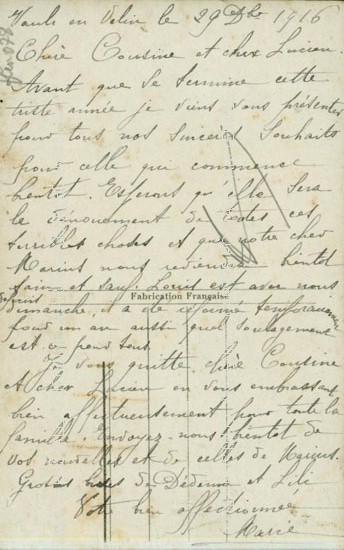 Vaulx en Velin le 29 Xbre 1916
Chère Cousine et cher Lucien.
Avant que se termine cette
triste année je viens vous présenter
pour tous nos sincères souhaits
pour celle qui commence
bientôt. Esperons qu'elle sera
le dénouement de toutes ces
terribles choses et que notre cher
Marius nous reviendra bientôt
sain et sauf. Louis est avec nous
Fabrication Française
depuis
dimanche, il a été réformé temporairement
pour un an aussi quel soulagement
est ce pour tous
Je vous quitte, chère Cousine
et cher Lucien en vous embrassant
bien affectueusement pour toute la
famille. Envoyez-nous bientôt de
vos nouvelles et de celles de Marius.
Grosses bises de Dédenne et Lili
Votre bien affectionnée
Marie